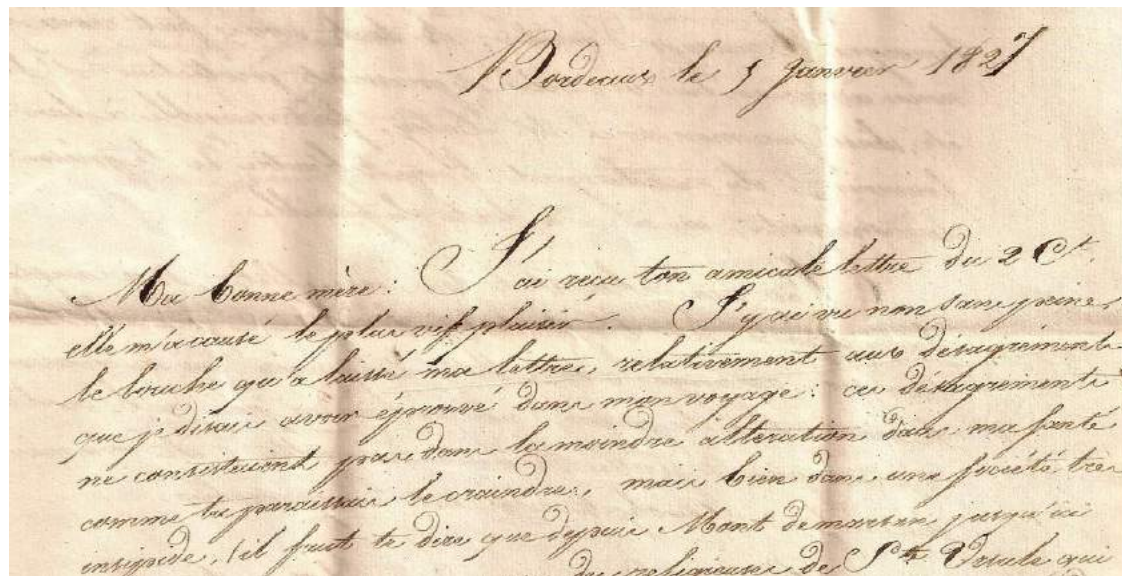 Bordeaux le 5 Janvier 1827
Ma bonne mère : J'ai reçu ton amicale lettre du 2 Ct.
elle m'a causé le plus vif plaisir. J'y ai vu non sans peine,
le louche qu'a laissé ma lettre, relativement aux désagréments
que je disais avoir éprouvé dans mon voyage : ces désagréments
ne consistaient pas dans la moindre altération dans ma santé
comme tu paraissais le craindre, mais bien dans une société très
insipide, il faut te dire que depuis Mont de marsan jusqu'ici
de religieuses de Ste Ursule qui